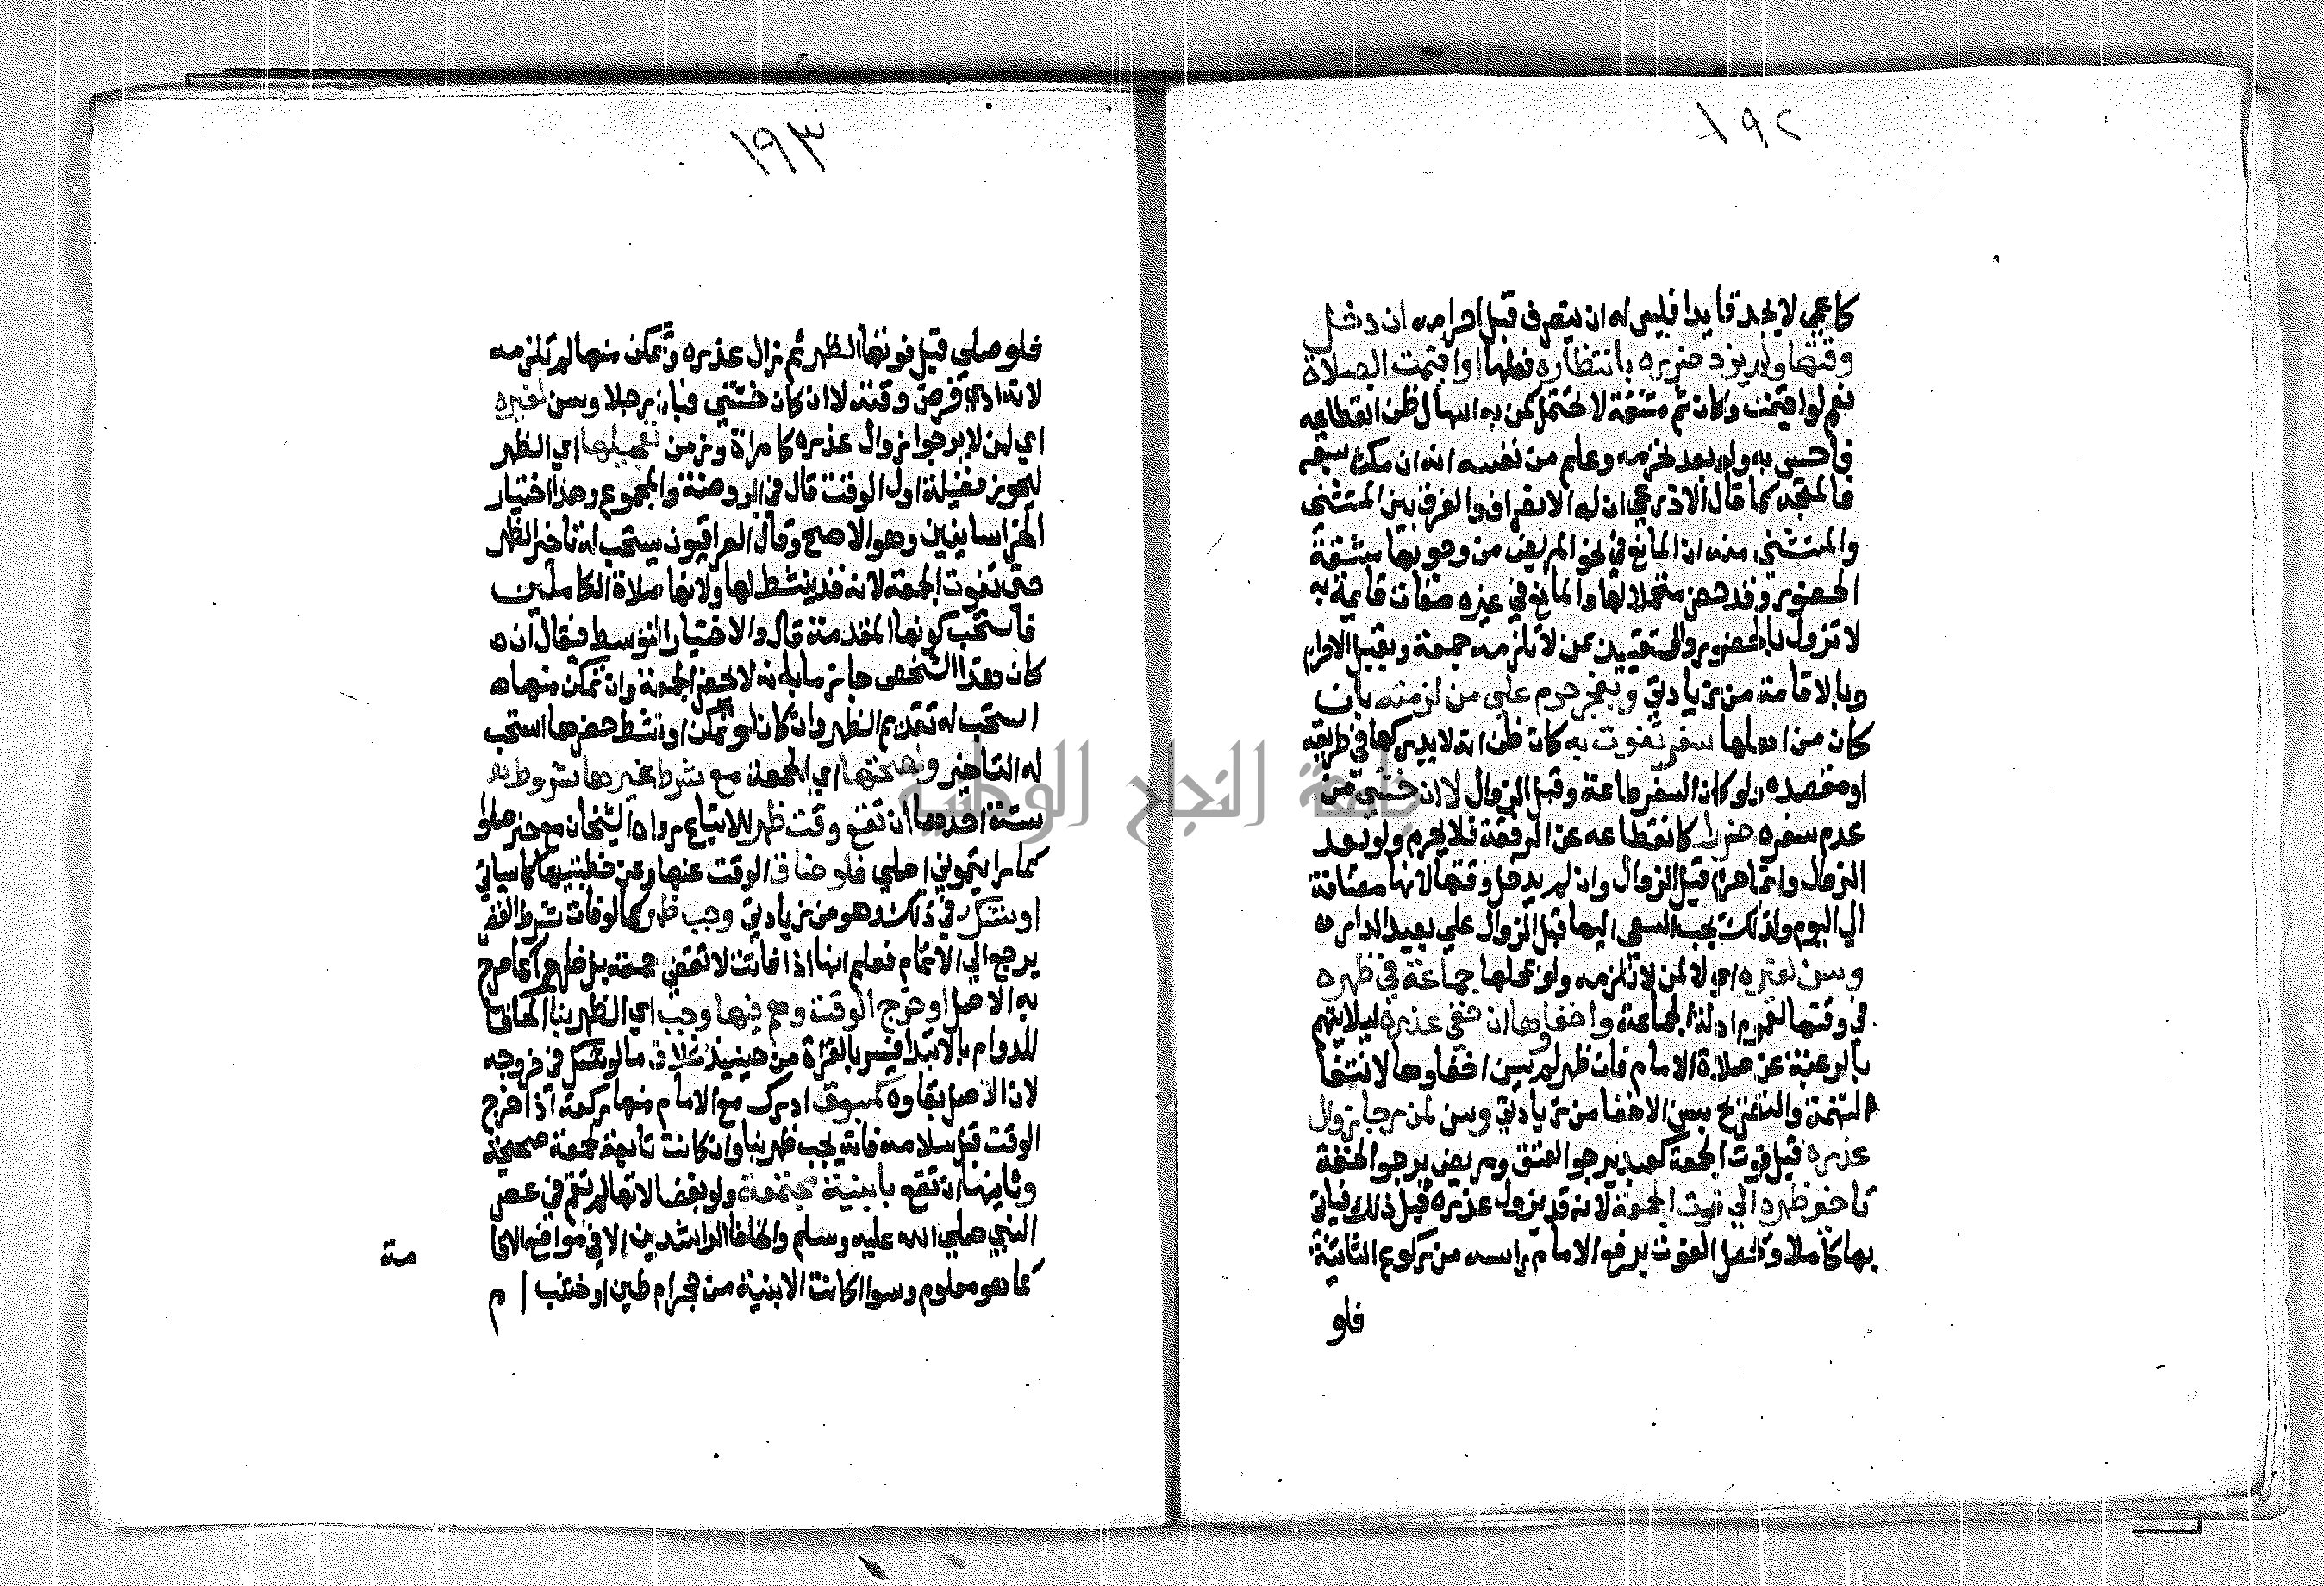 ١٩٢
كاعمي لا يجد قايدا فليس له ان ينصرف قبل احرامه ان دخل
وقتها ولم يزد ضرره بانتظاره فعلها او اقيمت الصلاة
نعم لو اقيمت وكان ثم مشقة لا تحتمل كمن به اسهال ظن انقطاعه
فاحس به ولو بعد تحرمه وعلم من نفسه انه ان مكث سبقه
فالمتجه كما قال الاذرعي ان له الانصراف والفرق بين المستثنى
والمستثنى منه ان المانع في نحو المريض من وجوبها مشقة
الحضور وقد حضر متحملا لها والمانع في غيره صفات قايمة به
لا تزول بالحضور والتقييد بمن لا تلزمه جمعة وبقبل الاحرام
وبالاقامة من زيادتي وبفجر حرم على من لزمته بان
كان من اهلها سفر تفوت به كان ظن انه لا يدركها في طريقه
او مقصده ولو كان السفر طاعة وقبل الزوال لا ان خشي من
عدم سفره ضررا كانقطاعه عن الرفقة فلا يحرم ولو بعد
الزوال وانما حرم قبل الزوال وان لم يدخل وقتها لانها مضافة
الي اليوم ولذلك يجب السعي اليها قبل الزوال علي بعيد الدار
وسن لغيره اي لمن لا تلزمه ولو بمحلها جماعة في ظهره
في وقتها لعموم ادلة الجماعة واخفاوها ان خفي عذره ليلا يتهم
بالرغبة عن صلاة الامام فان ظهر لم يسن اخفاوها لانتفا
التهمة والتصريح بسن الاخفا من زيادتي وسن لمن رجا زوال
عذره قبل فوت الجمعة كعبد يرجو العتق ومريض يرجو الخفة
تاخير ظهره الي فوت الجمعة لانه قد يزول عذره قبل ذلك فياتي
بها كاملا ويحصل الفوت برفع الامام راسه من ركوع الثانية
فلو
١٩٣
فلو صلي قبل فوتها الظهر ثم زال عذره وتمكن منها لم تلزمه
لانه ادي فرض وقته لا ان كان خنثي فبان رجلا وسن لغيره
اي لمن لا يرجوا زوال عذره كامراة وزمن تعجيلها اي الظهر
ليحوز فضيلة اول الوقت قال في الروضة والمجموع وهذا اختيار
الخراسانيين وهو الاصح وقال العراقيون يستحب له تاخير الظهر
حتى تفوت الجمعة لانه قد ينشط لها ولانها صلاة الكاملين
فاستحب كونها المقدمة قال والاختيار التوسط فيقال ان
كان هذا الشخص جازما بانه لا يحضر الجمعة وان تمكن منها
استحب له تقديم الظهر وان كان لو تمكن او نشط حضرها استحب
له التاخير ولصحتها اي الجمعة مع شرط غيرها شروط
ستة احدها ان تقع وقت ظهر للاتباع رواه الشيخان مع خبر صلوا
كما رايتموني اصلي فلو ضاق الوقت عنها وعن خطبتيها كما سياتي
او شك في ذلك وهو من زيادتي وجب ظهر كما لو فات شرط القصر
يرجع الي الاتمام فعلم انها اذا فاتت لا تقضي جمعة بل ظهرا كما صرح
به الاصل او خرج الوقت وهم فيها وجب اي الظهر بنا الحاقا
للدوام بالابتدا فيسر بالقراة من حينيذ بخلاف ما لو شك في خروجه
لان الاصل بقاوه كمسبوق ادرك مع الامام منها ركعة اذا خرج
الوقت قبل سلامه فانه يجب ظهر بنا وان كانت تابعة لجمعة صحيحة
وثانيها ان تقع بابنية مجتمعة ولو بفضا لانها لم تقم في عصر
النبي صلي الله عليه وسلم والخلفا الراشدين الا في مواضع الاقا
مة
كما هو معلوم وسوا كانت الابنية من حجر ام طين او خشب ام